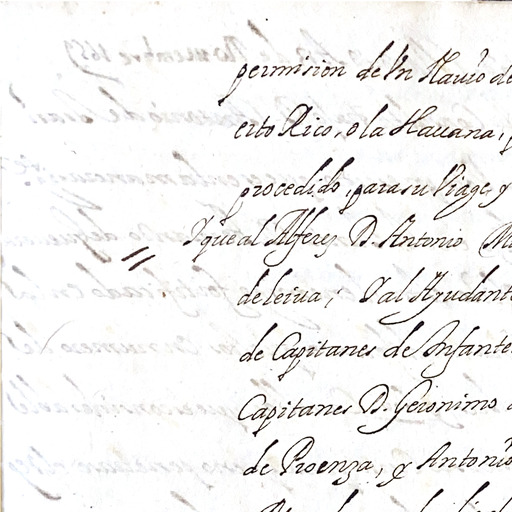 permision de Vn Nauio de
erto Rico, o la Hauana,
procedido, para su Viage, y
Y que al Alferez D. Antonio
de leiua; Y al Ayudant
de Capitanes de Infante
Capitanes D. Geronimo
de Proenza, y Antonio